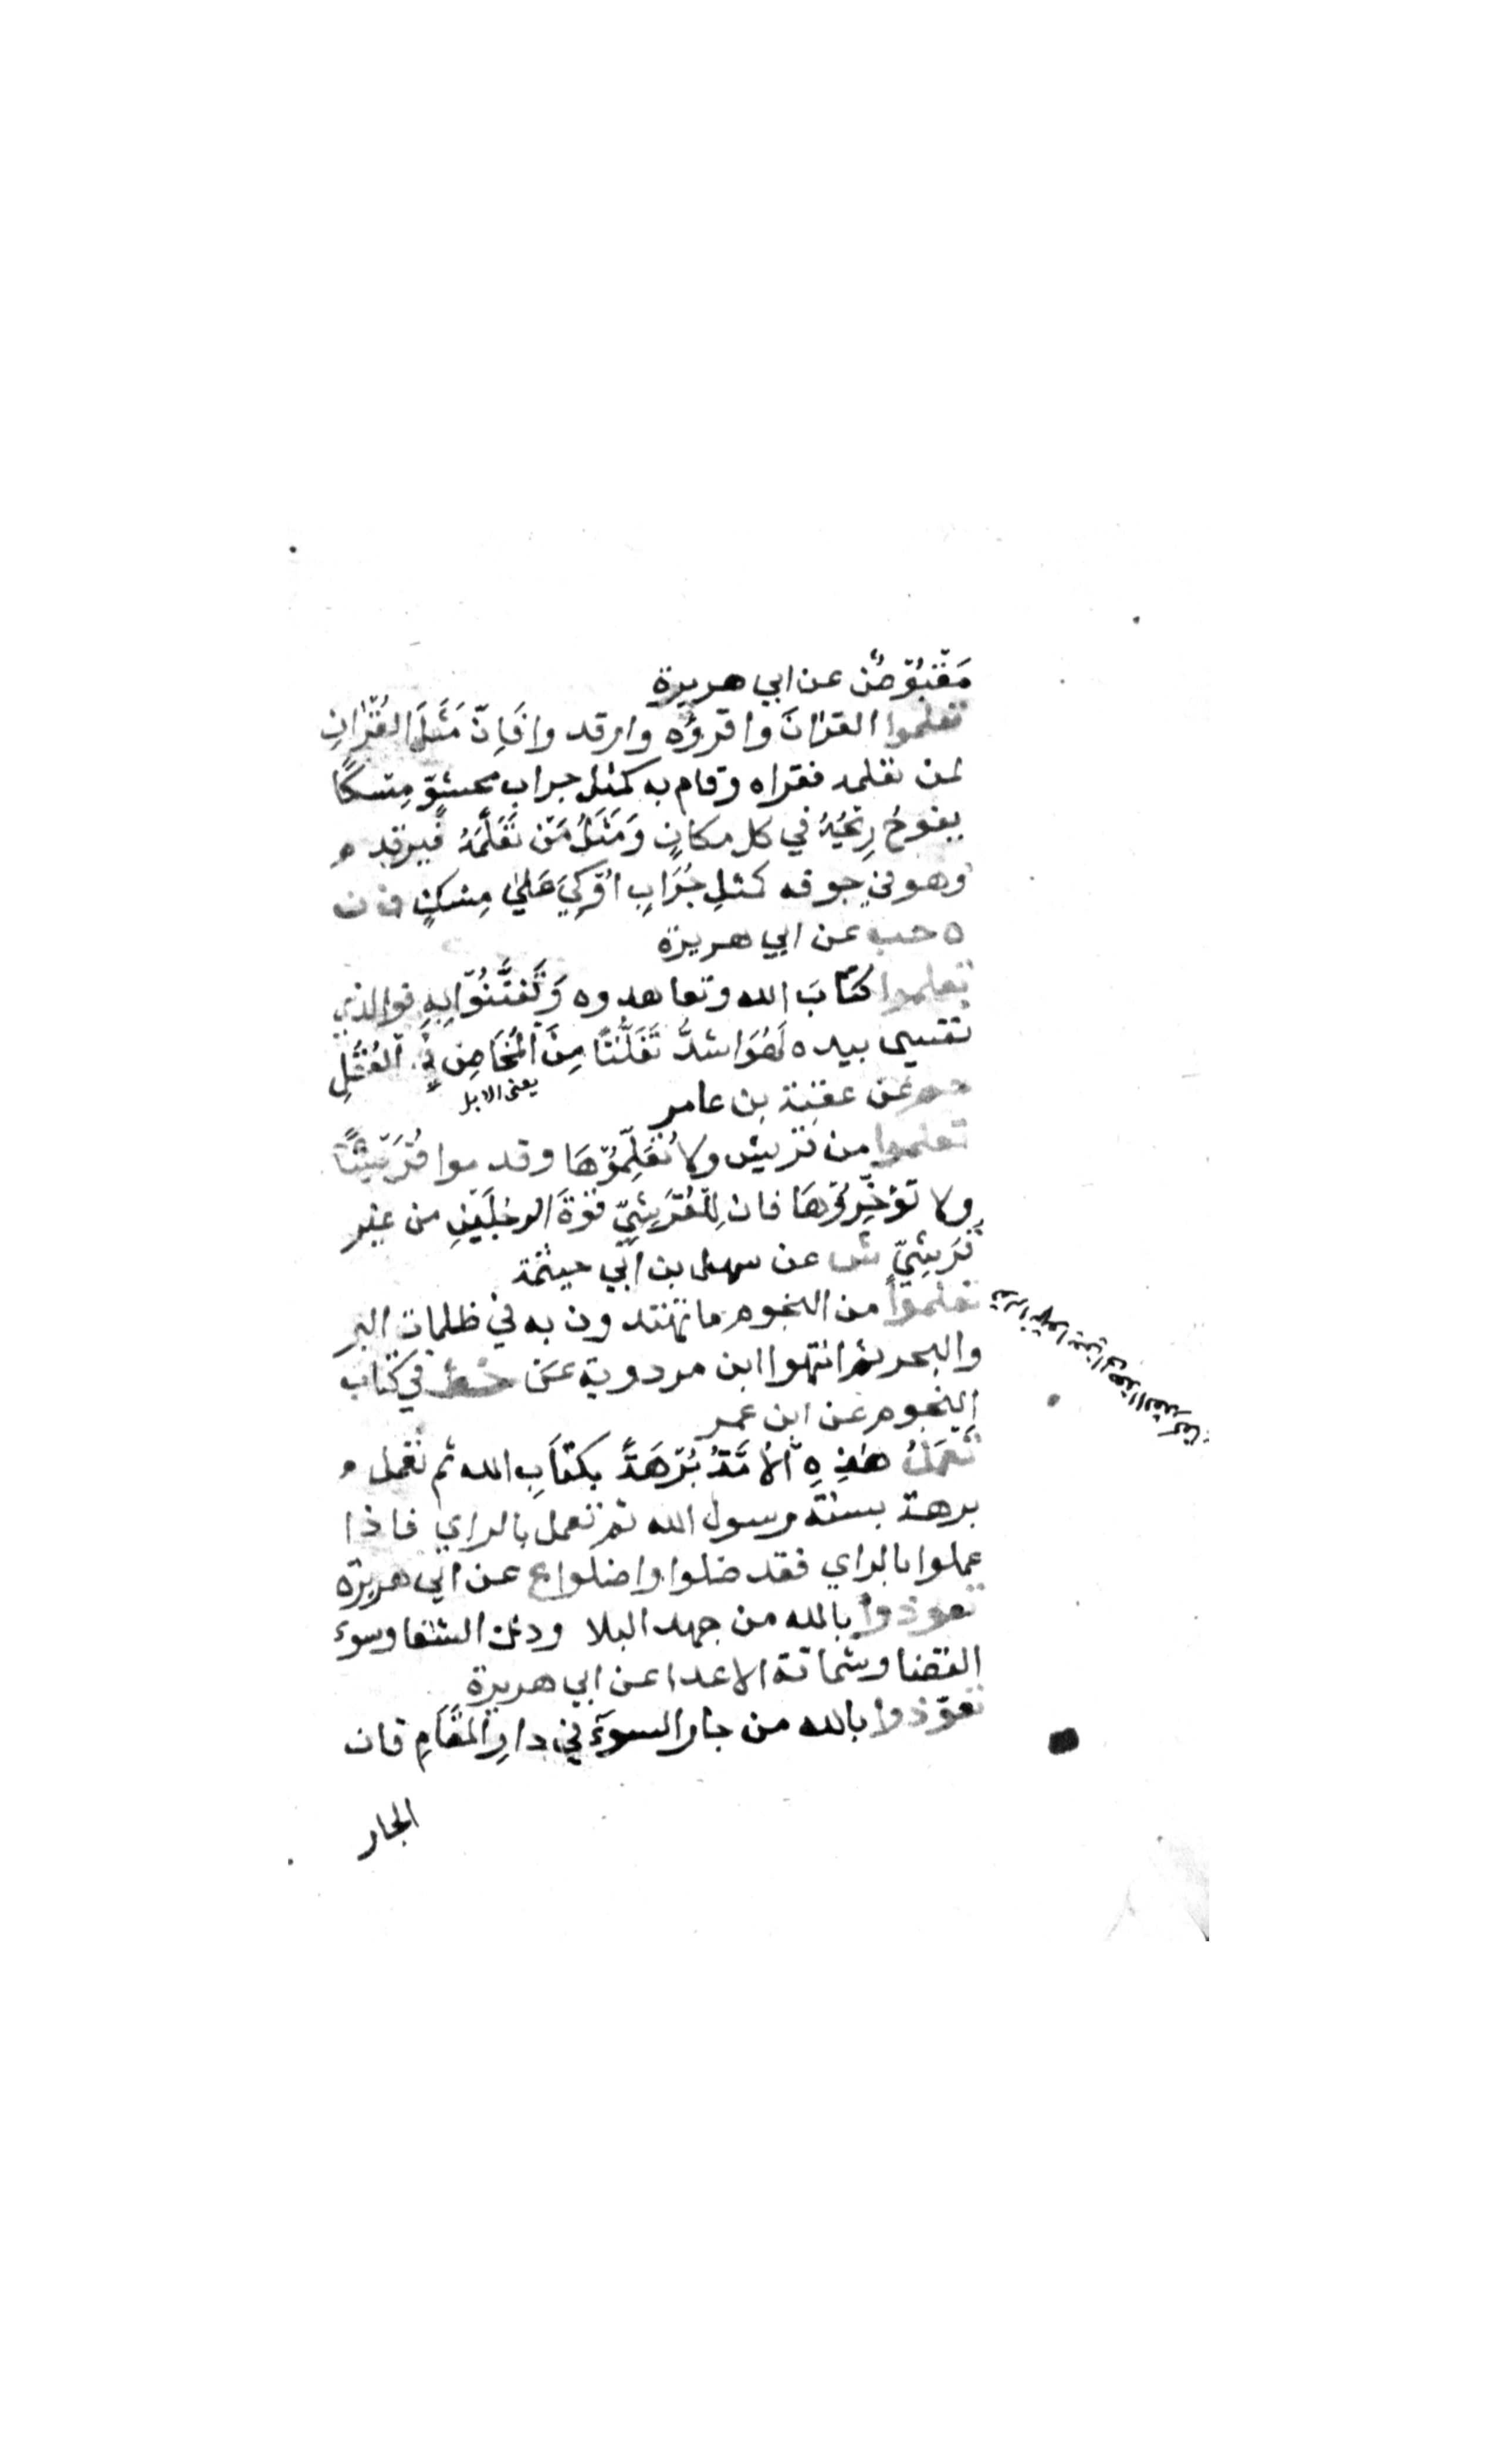 مَقْبُوْضٌ عن ابي هريرة
تعلموا القرانَ واقروُه وارقدوا فَاِنّ مَثَلَ القُرْانِ
لمن تعلمه فقراه وقام به كمثل جراب محشوّ مِسكًا
يفوحُ رِيحُهُ في كل مكانٍ وَمَثَلُ مَنْ تَعَلَّمَهُ فَيرقد
وهو في جوفه كمثلِ جُرَابٍ اُوْكِيَ عَلىٰ مِسكٍ ت ن
ه حب عن ابي هريرة
تعلموا كتَابَ الله وتعاهدوه وَتَغَنَّوْا بِهِ فوالذي
نفسي بيده لَهُوَ اشدُّ تَفَلُّتًا مِنَ الْمَخَاضِ فِي الْعُقُلِ
يعني الابل
حم عن عقبة بن عامر
تعلموا من قريش ولا تُعَلِّمُوْهَا وقدموا قُرَيْشًا
ولا تُؤخِّرُوْهَا فان لِلْقُرَيشِيّ قوةَ الرجُلَيْنِ من غير
قُرَيشِيّ ش عن سهل بن ابي حيثمة
تعلموا من النجوم ما تهتدون به في ظلمات البر
والبحر ثم انتهوا ابن مردوية عن خط في كتاب
النجوم عن ابن عمر
تَعمَلُ هٰذِهِ الْاُمَّةُ بُرْهَةً بكتَابِ الله ثم تعمل
برهة بسنة رسول الله ثم تعمل بالراي فاذا
عملوا بالراي فقد ضلوا واضلوا ع عن ابي هريرة
تعوذوا بالله من جهد البلا ودرك الشقا وسوء
القضا وشماتة الاعدا عن ابي هريرة
تعوّذوا بالله من جار السوءَ في دارِ المقَامِ فان
الجار